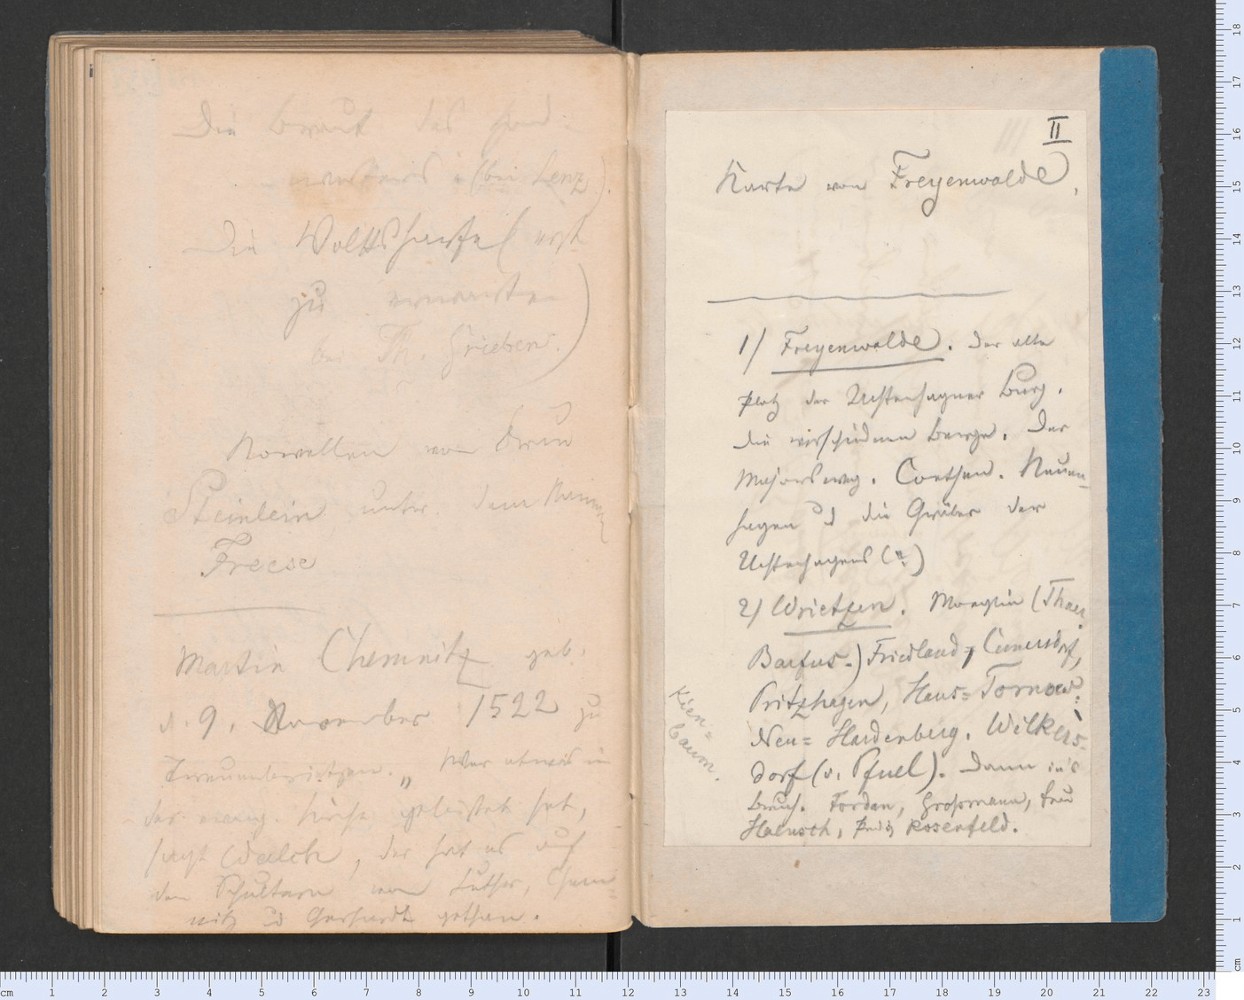 Die Braut des
(bei Lenz).
Die Volksharfe (erst
zu erwarten
bei Th. Grieben.)
Novellen von
Steinlein unter dem Namen
Freese
Martin Chemnitz geb.
d. 9. November 1522 zu
Treuenbrietzen. „Wer etwas in
der evang. Kirche geleistet hat,
sagt Walch, der hat es auf
den Schultern von Luther, Chem
nitz u Gerhardt gethan.
II
Karte von Freyenwalde.
1) Freyenwalde. Der alte
Platz der Uchtenhagner Burg.
Die verschiednen Berge. Der
Majorsweg. Coethen. Neuen-
hagen u die Gräber der
Uchtenhagens (?)
2) Wrietzen. Moeglin (Thaer.
Barfus.) Friedland, Cunersdorf,
Pritzhagen, Haus-Tornow.
Neu-Hardenberg. Wilkers-
dorf (v. Pfuel). Dann in's
Bruch. Jordan, Großmann, Frau
Haensch, Pred. Rosenfeld.
Kien-
baum.